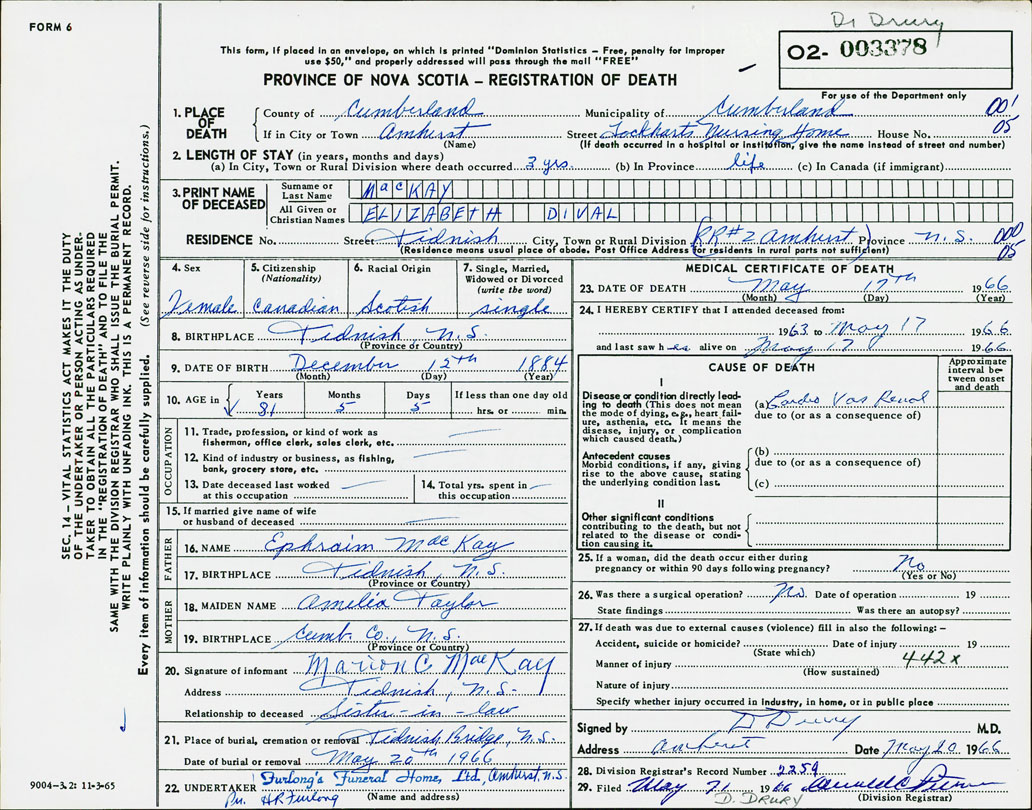 FORM 6
Dr Drury
This form, if placed in an envelope, on which is printed "Dominion Statistics – Free, penalty for improper
use $50," and properly addressed will pass through the mail "FREE"
02- 003378
PROVINCE OF NOVA SCOTIA – REGISTRATION OF DEATH
For use of the Department only
1. PLACE OF DEATH County of Cumberland Municipality of Cumberland 001
If in City or Town Amherst Street Lockharts Nursing Home House No. 05
(Name) (If death occurred in a hospital or institution, give the name instead of street and number)
2. LENGTH OF STAY (in years, months and days)
(a) In City, Town or Rural Division where death occurred 3 yrs. (b) In Province life (c) In Canada (if immigrant)
3. PRINT NAME OF DECEASED Surname or Last Name MacKAY
All Given or Christian Names ELIZABETH DIVAL
RESIDENCE No. Street Tidnish City, Town or Rural Division (RR#2 Amherst) Province N.S. 000
(Residence means usual place of abode. Post Office Address for residents in rural parts not sufficient) 05
4. Sex Female
5. Citizenship (Nationality) Canadian
6. Racial Origin Scotish
7. Single, Married, Widowed or Divorced (write the word) single
8. BIRTHPLACE Tidnish, N.S.
(Province or Country)
9. DATE OF BIRTH December 12th 1884
(Month) (Day) (Year)
10. AGE in Years 81 Months 5 Days 5 If less than one day old hrs. or min.
OCCUPATION
11. Trade, profession, or kind of work as
fisherman, office clerk, sales clerk, etc.
12. Kind of industry or business, as fishing,
bank, grocery store, etc.
13. Date deceased last worked
at this occupation
14. Total yrs. spent in
this occupation
15. If married give name of wife
or husband of deceased
FATHER
16. NAME Ephraim MacKay
17. BIRTHPLACE Tidnish, N.S.
(Province or Country)
MOTHER
18. MAIDEN NAME Amelia Taylor
19. BIRTHPLACE Cumb. Co., N.S.
(Province or Country)
20. Signature of informant Marion C. MacKay
Address Tidnish, N.S.
Relationship to deceased Sister-in-law
21. Place of burial, cremation or removal Tidnish Bridge, N.S.
Date of burial or removal May 20th 1966
22. UNDERTAKER Furlong's Funeral Home, Ltd, Amherst, N.S.
Per. HR Furlong (Name and address)
MEDICAL CERTIFICATE OF DEATH
23. DATE OF DEATH May 17th 1966
(Month) (Day) (Year)
24. I HEREBY CERTIFY that I attended deceased from:
1963 to May 17 1966
and last saw h er alive on May 17 1966
CAUSE OF DEATH
Approximate interval between onset and death
I
Disease or condition directly leading to death (This does not mean the mode of dying, e.g., heart failure, asthenia, etc. It means the disease, injury, or complication which caused death.)
(a) Cardio Vas Renal
due to (or as a consequence of)
Antecedent causes
Morbid conditions, if any, giving rise to the above cause, stating the underlying condition last.
(b)
due to (or as a consequence of)
(c)
II
Other significant conditions
contributing to the death, but not related to the disease or condition causing it.
25. If a woman, did the death occur either during
pregnancy or within 90 days following pregnancy? No
(Yes or No)
26. Was there a surgical operation? No. Date of operation 19
State findings Was there an autopsy?
27. If death was due to external causes (violence) fill in also the following:–
Accident, suicide or homicide? Date of injury 19
(State which) 442x
Manner of injury
(How sustained)
Nature of injury
Specify whether injury occurred in industry, in home, or in public place
Signed by D Drury M.D.
Address Amherst Date May 20 1966
28. Division Registrar's Record Number 2259
29. Filed May 21 1966
D. DRURY (Division Registrar)
SEC. 14 – VITAL STATISTICS ACT MAKES IT THE DUTY
OF THE UNDERTAKER OR PERSON ACTING AS UNDER-
TAKER TO OBTAIN ALL THE PARTICULARS REQUIRED
IN THE "REGISTRATION OF DEATH" AND TO FILE THE
SAME WITH THE DIVISION REGISTRAR WHO SHALL ISSUE THE BURIAL PERMIT.
WRITE PLAINLY WITH UNFADING INK. THIS IS A PERMANENT RECORD.
Every item of information should be carefully supplied. (See reverse side for instructions.)
9004-3.2: 11-3-65